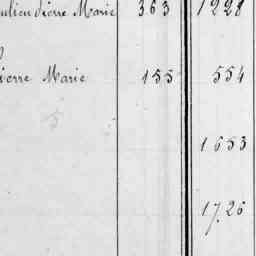 Pierre Marie 363 1228
Pierre Marie 155 554
1653
1726